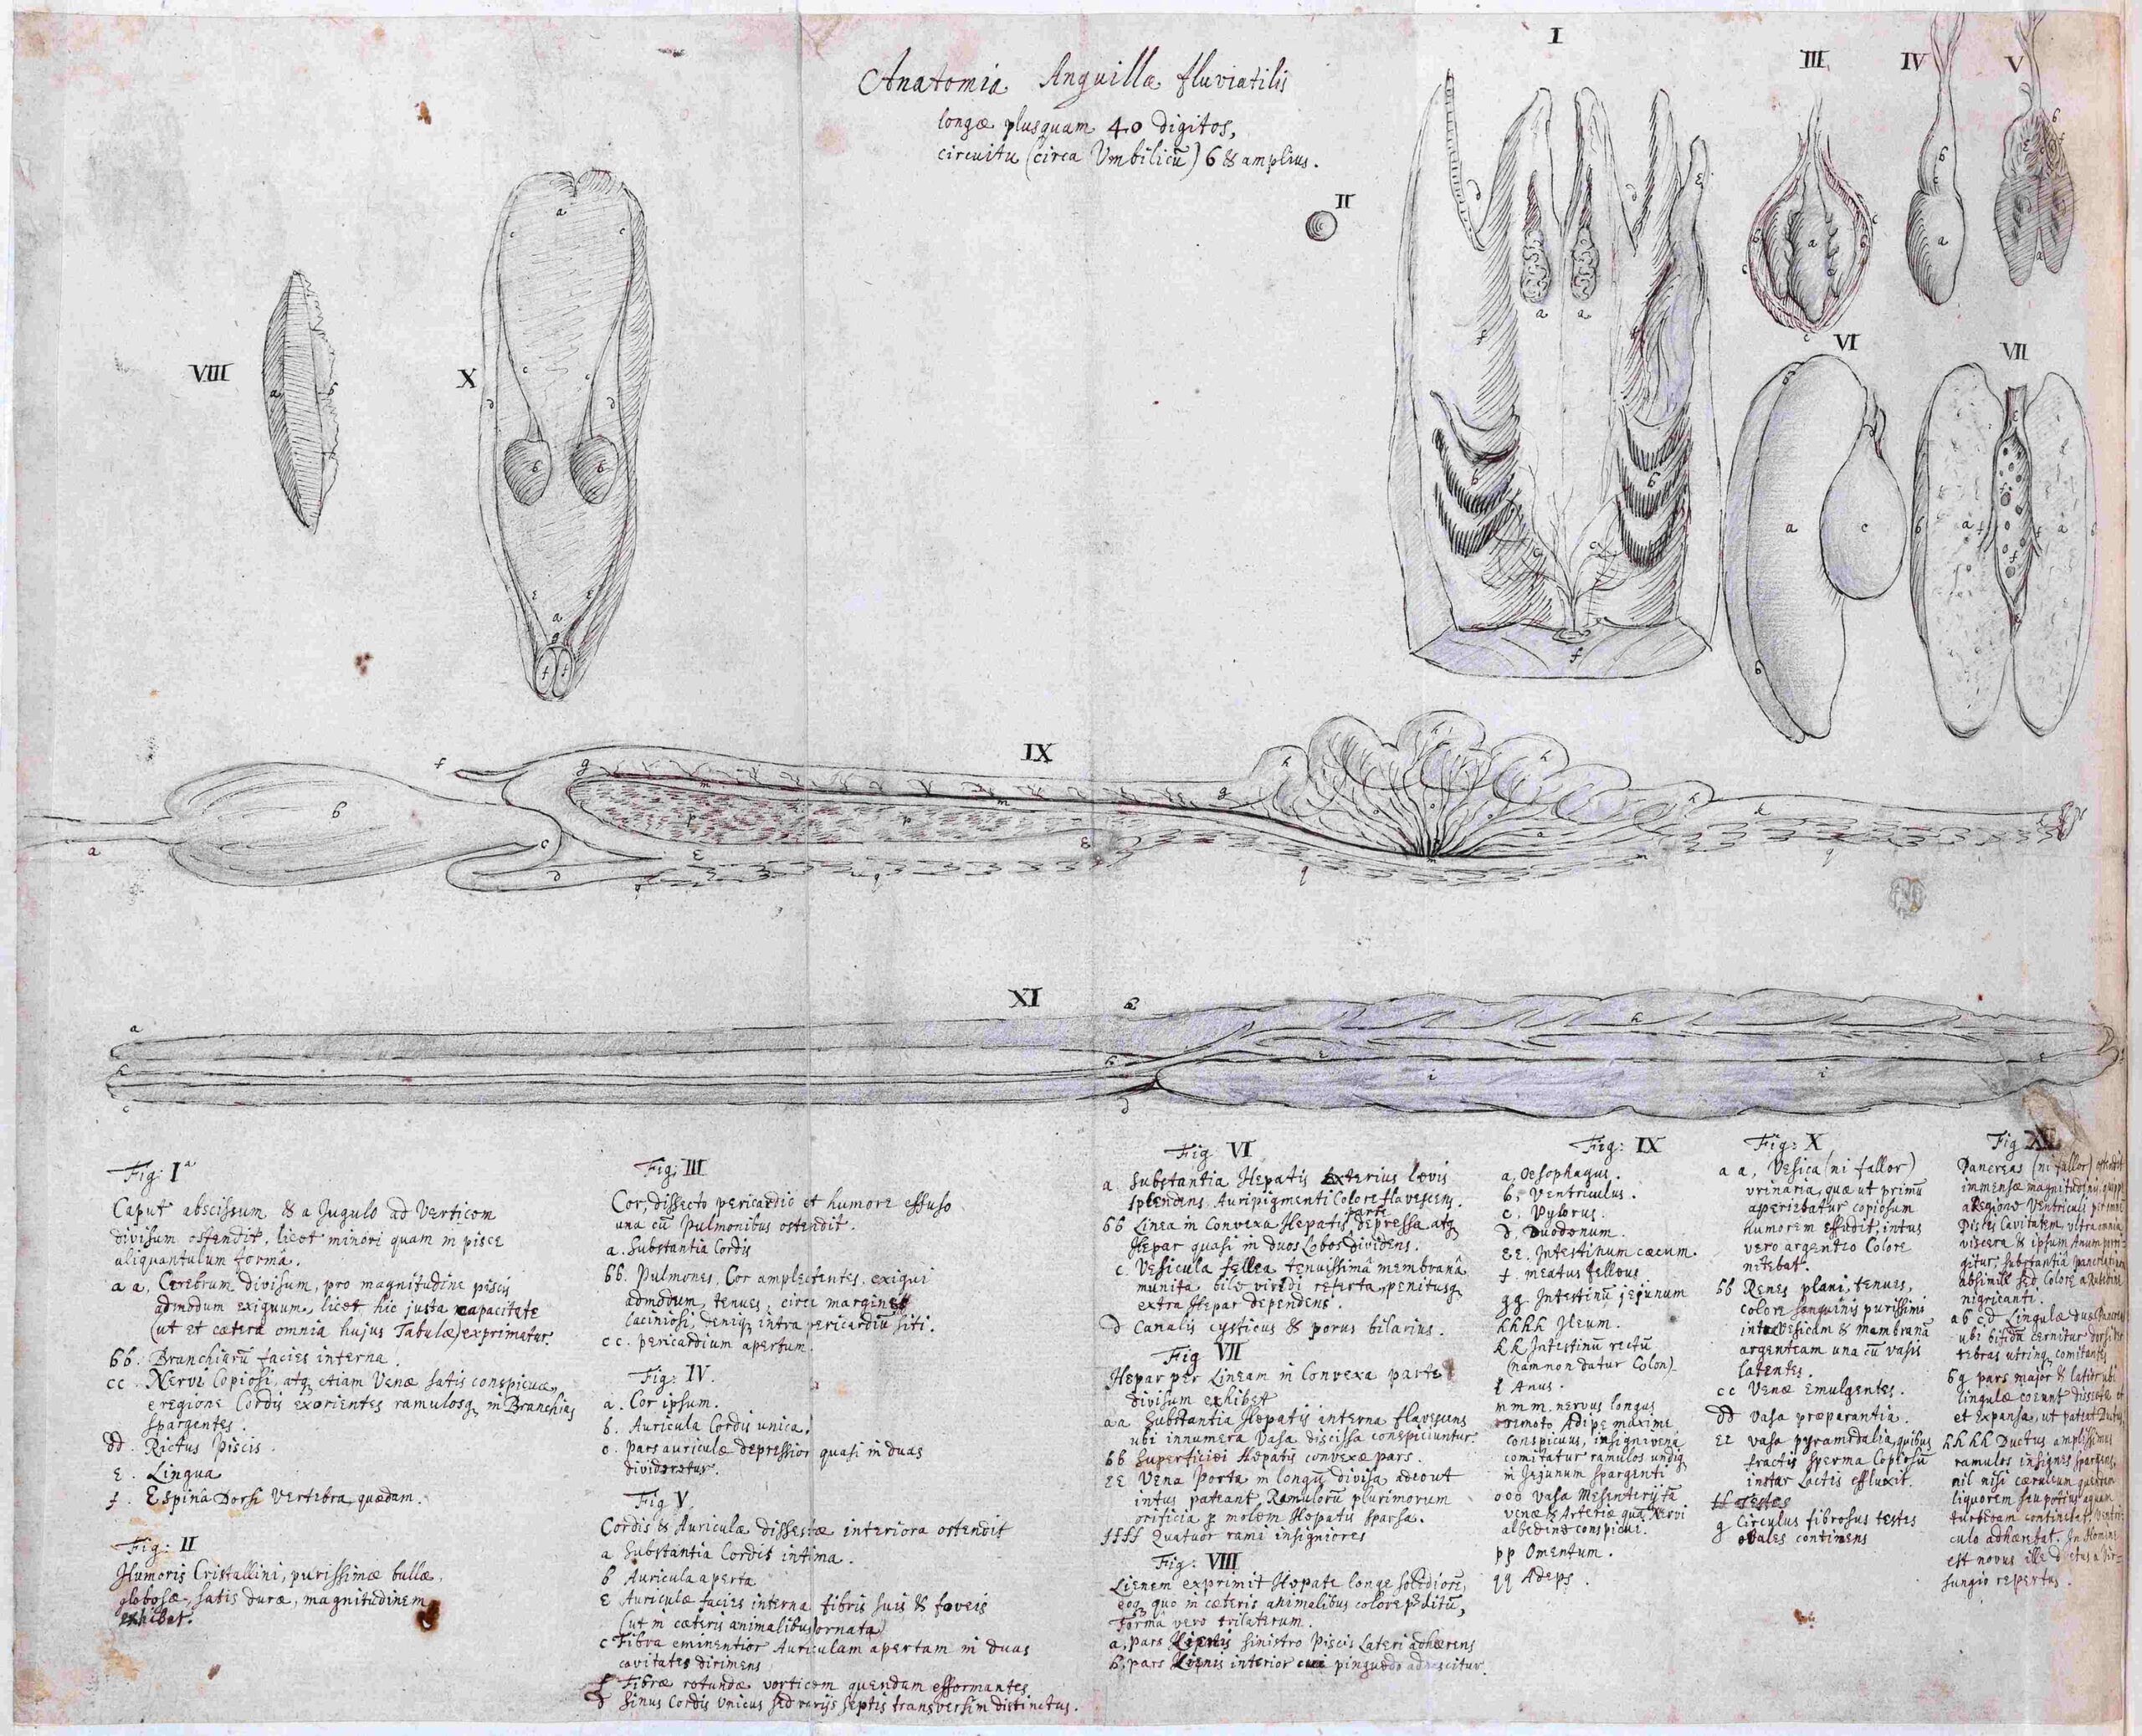 Anatomia Anguillæ fluviatilis
longæ plusquam 40 digitos,
circuitu (circa Vmbilicũ) 6 & amplius.
I
II
III
IV
V
VI
VII
VIII
X
IX
XI
Fig: I.ª
Caput abscissum & a Jugulo ad Verticem
divisum ostendit, licet minori quam in pisce
aliquantulum formâ.
a a, Cerebrum divisum, pro magnitudine piscis
admodum exiguum, licet hic justa capacitate
(ut et cætera omnia hujus Tabulæ) exprimatur.
bb. Branchiarũ facies interna.
cc. Nervi Copiosi, atq etiam Venæ satis conspicuæ,
e regione Cordis exorientes ramulosq in Branchias
spargentes.
dd. Rictus Piscis.
e. Lingua
f. E spinâ Dorsi Vertebra quædam.
Fig: II
Humoris Cristallini, purissimæ bullæ,
globosæ, satis duræ, magnitudinem
exhibet.
Fig: III
Cor, dissecto pericardio et humore effuso
una cũ Pulmonibus ostendit.
a. Substantia Cordis
bb. Pulmones, Cor amplectentes, exigui
admodum, tenues, circa margines
laciniosi, deniq intra pericardiũ siti.
c c. pericardium apertum.
Fig: IV.
a. Cor ipsum.
b. Auricula Cordis unica.
c. Pars auriculæ depressior quasi in duas
divideretur.
Fig V.
Cordis & Auriculæ dissectæ interiora ostendit
a Substantia Cordis intima.
b Auricula aperta
e Auriculæ facies interna fibris suis & foveis
(ut in cæteris animalibus) ornata
c Fibra eminentior Auriculam apertam in duas
cavitates dirimens
f Fibræ rotundæ vorticem quendam efformantes
d Sinus Cordis Unicus sed varijs septis transversim distinctus.
Fig VI
a Substantia Hepatis exterius levis
splendens Auripigmenti Colore flavescens.
bb Linea in Convexa Hepatis parte depressa atq
Hepar quasi in duos Lobos dividens.
c. Vesicula fellea tenuissimâ membranâ
munita, bile viridi referta, penitusq
extra Hepar dependens.
d Canalis cysticus & porus bilarius.
Fig VII
Hepar per Lineam in Convexa parte
divisum exhibet
a a Substantia Hepatis interna flavescens
ubi innumera Vasa discissa conspiciuntur
bb Superficiei Hepatis convexæ pars.
ee Vena Porta in longũ divisa, adeo ut
intus pateant Ramulorũ plurimorum
orificia p molem Hepatis sparsa.
ffff Quatuor rami insigniores
Fig: VIII
Lienem exprimit Hepate longe solidiorẽ,
eoq quo in cæteris animalibus colore pditũ,
Formâ vero trilaterum.
a, pars Lienis sinistro Piscis Lateri adhærens
b, pars Lienis interior cui pinguedo adnascitur.
Fig: IX
a, Oesophagus.
b. Ventriculus.
c. Pylorus.
d. Duodenum.
ee. Intestinum cæcum.
f meatus felleus
gg. Intestinũ jejunum
hhhh Ileum.
kk Intestinũ rectũ
(nam non datur Colon)
l Anus.
m m m. nervus longus
remoto Adipe maxime
conspicuus, insigni venâ
comitatur ramulos undiq
in Jejunum spargenti
ooo vasa Mesenterij tã
venæ & Arteriæ quã Nervi
albedine conspicui.
pp Omentum.
qq Adeps.
Fig: X
a a, Vesica (ni fallor)
vrinaria, quæ ut primũ
aperiebatur copiosum
humorem effudit, intus
vero argenteo Colore
nitebat.
bb Renes plani, tenues,
colore sanguinis purissimi
inter Vesicam & membranã
argenteam una cũ vasis
latentes.
cc Venæ Emulgentes.
dd Vasa præparantia.
ee vasa pyramidalia, quibus
fractis sperma Copiosũ
instar Lactis effluxit.
ff testes
g Circulus fibrosus testes
ovales continens
Fig XI
Pancreas (ni fallor)
immensæ magnitudinis,
a Regione Ventriculi per
Piscis Cavitatem, ultra omnia
viscera & ipsum Anum
substantiâ
absimile sed Colore
nigricanti.
ab cd Lingulæ duæ
ubi bifidũ cernitur
tebras utrinq comitantes
bg pars major & latior ubi
lingulæ coeunt dissecta
et Expansa, ut pateat
hhhh Ductus amplissimus
ramulos insignes spargens,
nil nisi cæruleum
liquorem seu potius aquam
turbidam continebat,
culo adhærebat. In Homine
est novus ille ductus a Vir-
sungio repertus.